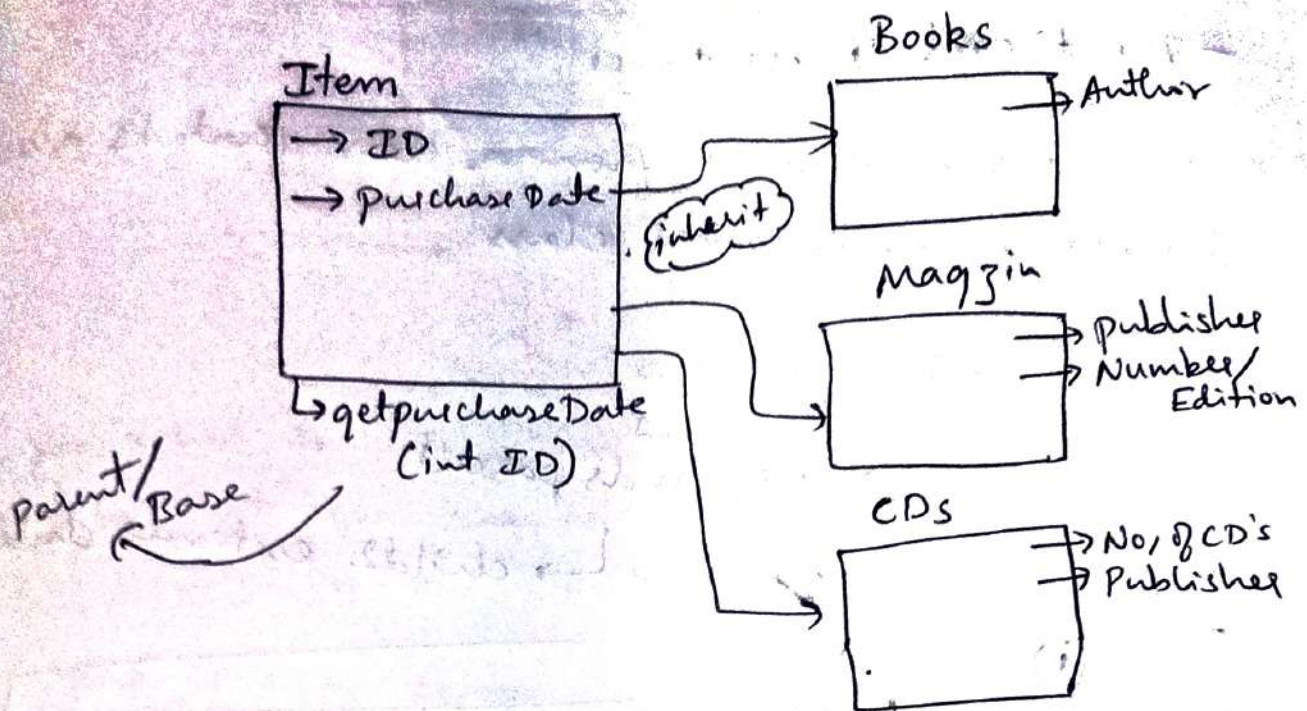 Item
→ ID
→ purchaseDate
↳ getpurchaseDate
(int ID)
parent/
Base
inherit
Books
→ Author
Magzin
→ publisher
→ Number/
Edition
CDs
→ No, of CD's
→ Publisher